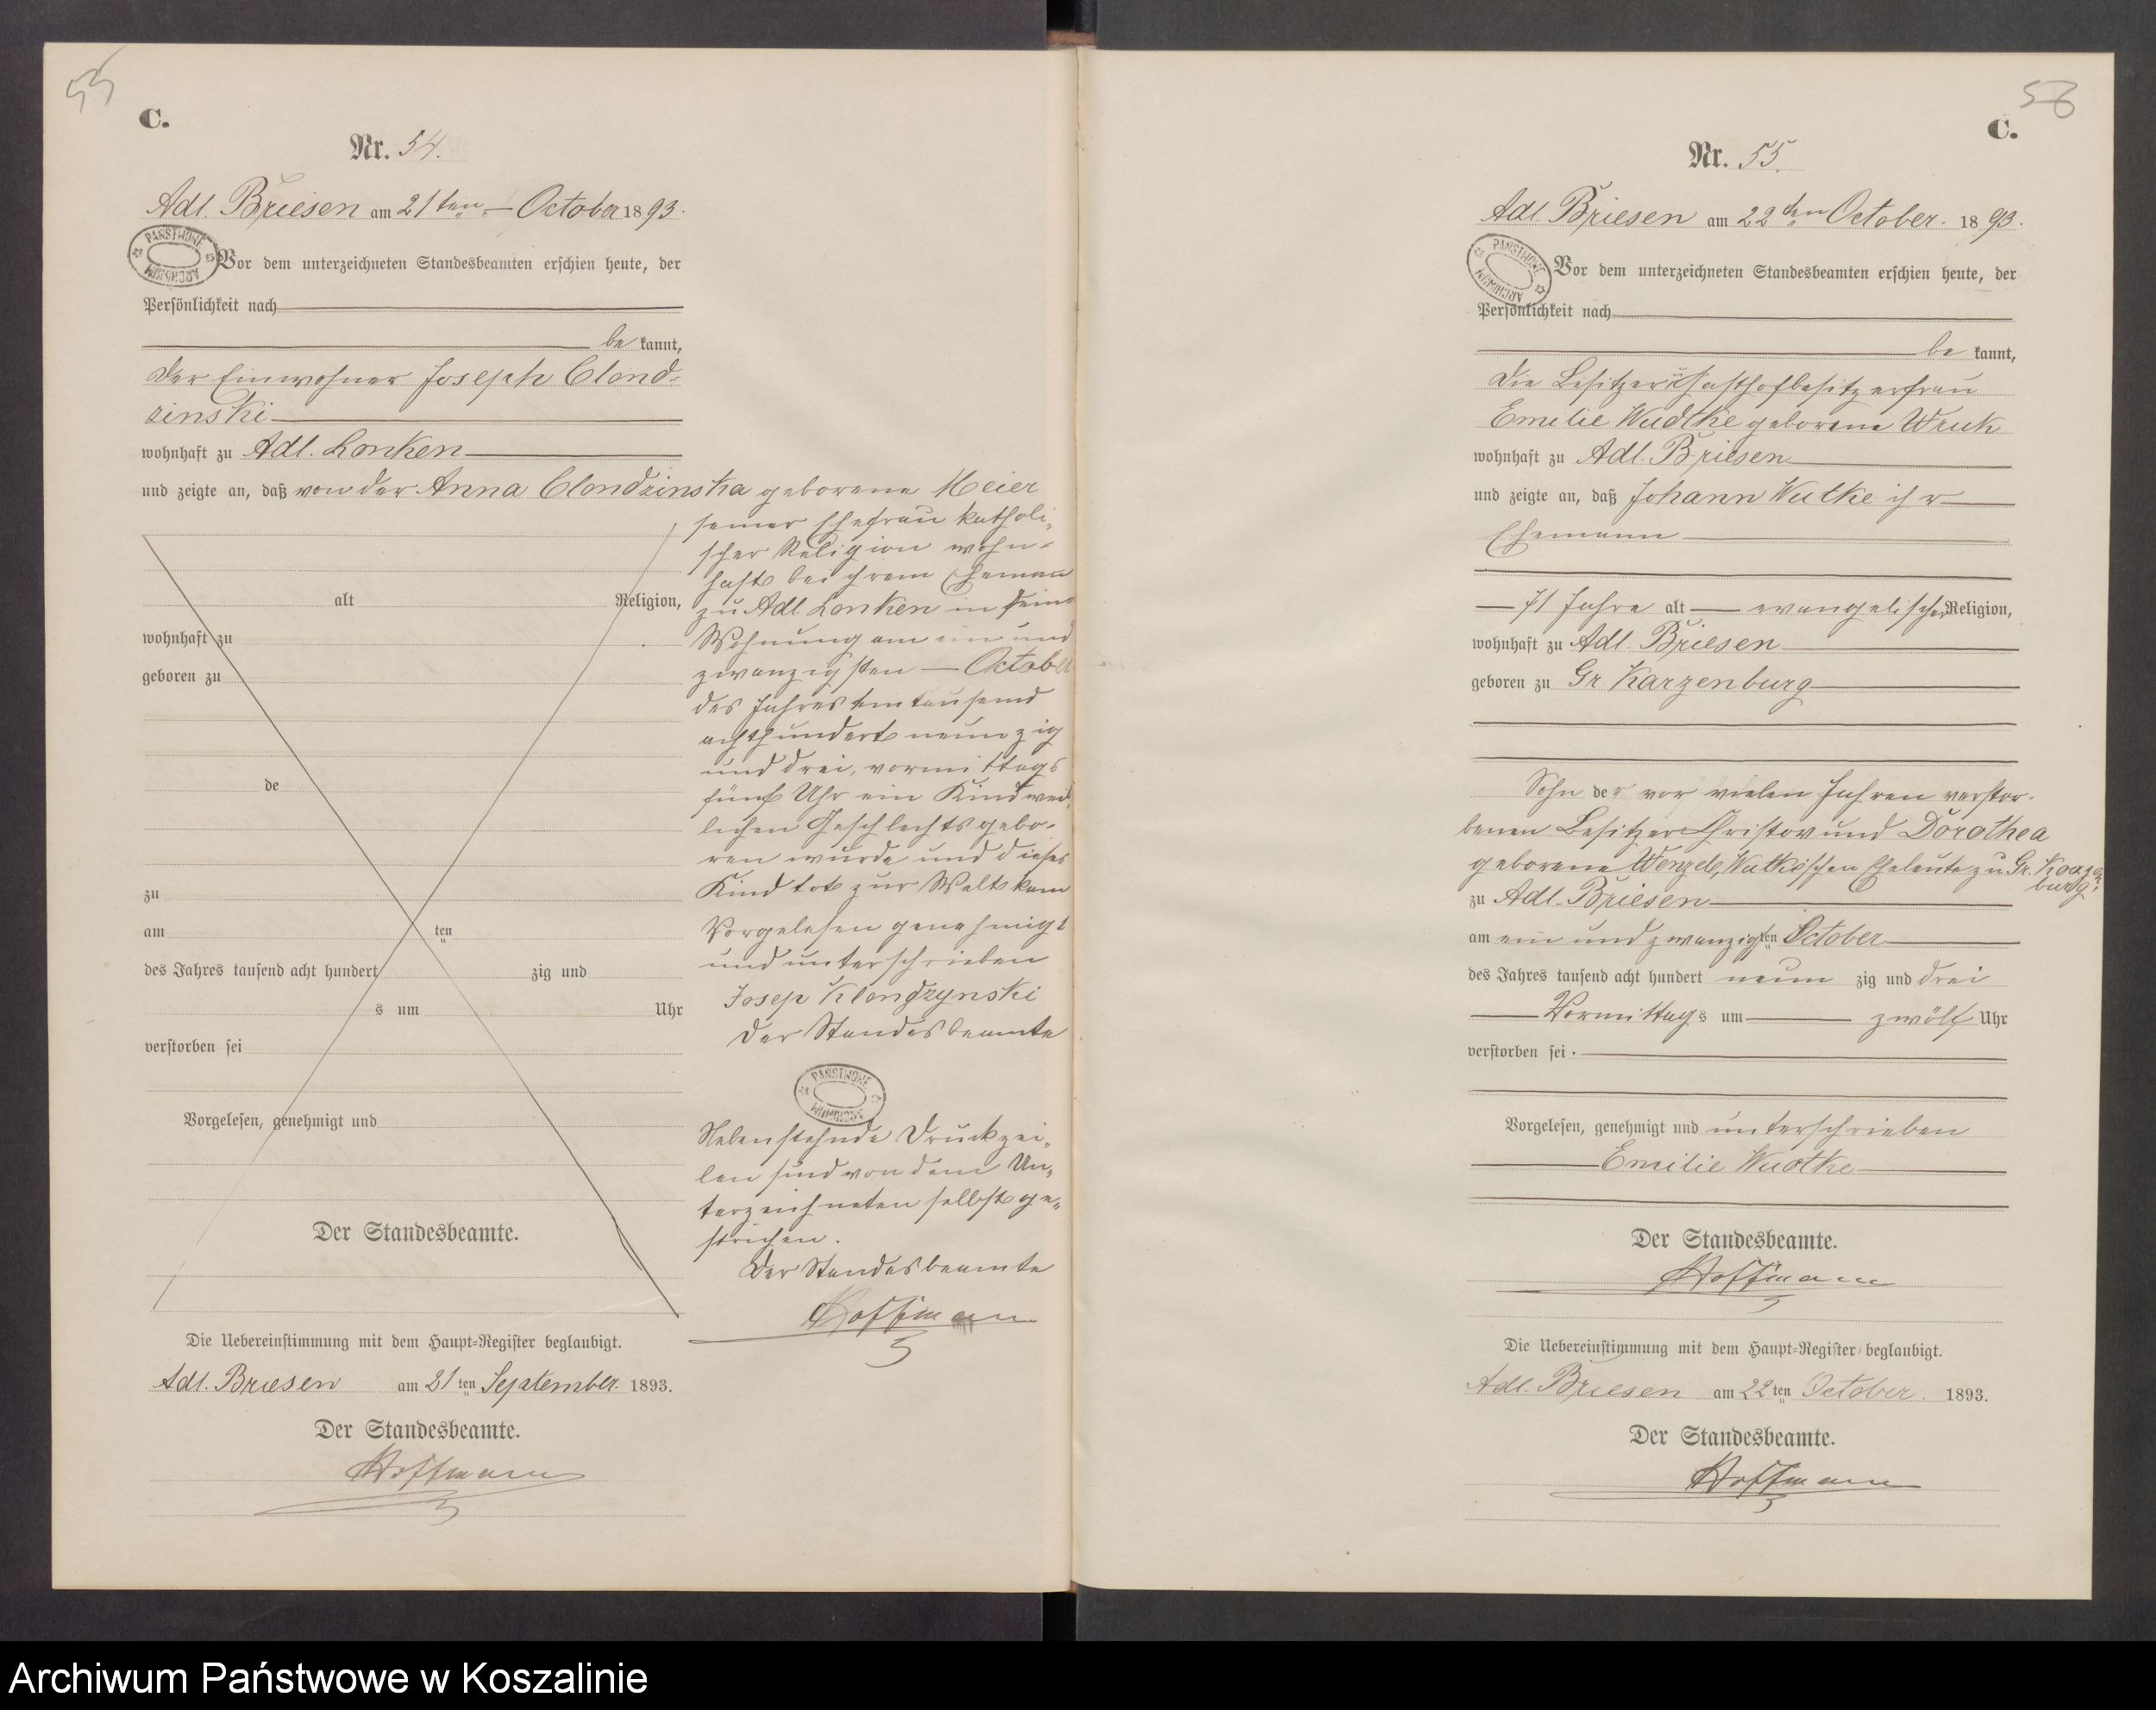 55
C.
Nr. 54.
Adl. Briesen am 21ten October 1893.
PAŃSTWOWE ARCHIWUM
Vor dem unterzeichneten Standesbeamten erschien heute, der
Persönlichkeit nach
be kannt,
der Einwohner Joseph Clond-
zinski
wohnhaft zu Adl. Lonken
und zeigte an, daß von der Anna Clondzinska geborene Meier
seiner Ehefrau katholi-
scher Religion wohn-
haft bei ihrem Ehemann
zu Adl Lonken in seiner
Wohnung am ein und
zwanzigsten October
des Jahres eintausend
achthundert neunzig
und drei, vormittags
fünf Uhr ein Kind weib-
lichen Geschlechts gebo-
ren wurde und dieses
Kind tot zur Welt kam
Vorgelesen genehmigt
und unterschrieben
Josep Klondzynski
Der Standesbeamte
PAŃSTWOWE ARCHIWUM
Nebenstehende Druckzei-
len sind von dem Un-
terzeichneten selbst ge-
strichen.
Der Standesbeamte
Hoffmann
alt Religion,
wohnhaft zu
geboren zu
de
zu
am ten
des Jahres tausend acht hundert zig und
s um Uhr
verstorben sei
Vorgelesen, genehmigt und
Der Standesbeamte.
Die Uebereinstimmung mit dem Haupt-Register beglaubigt.
Adl. Briesen am 21ten September. 1893.
Der Standesbeamte.
Hoffmann
56
C.
Nr. 55.
Adl Briesen am 22ten October. 1893.
PAŃSTWOWE ARCHIWUM
Vor dem unterzeichneten Standesbeamten erschien heute, der
Persönlichkeit nach
be kannt,
die Besitzer u Gasthofbesitzerfrau
Emilie Wudtke geborene Wruk
wohnhaft zu Adl. Briesen
und zeigte an, daß Johann Wutke ihr
Ehemann
71 Jahre alt evangelischer Religion,
wohnhaft zu Adl. Briesen
geboren zu Gr Karzenburg
Sohn der vor vielen Jahren verstor-
benen Besitzer Christov und Dorothea
geborene Wenzel, Wutkischen Eheleute zu Gr. Karzen-
burg.
zu Adl. Briesen
am ein und zwanzigsten October
des Jahres tausend acht hundert neun zig und drei
Vormittags um zwölf Uhr
verstorben sei.
Vorgelesen, genehmigt und unterschrieben
Emilie Wudtke
Der Standesbeamte.
Hoffmann
Die Uebereinstimmung mit dem Haupt-Register beglaubigt.
Adl. Briesen am 22ten October. 1893.
Der Standesbeamte.
Hoffmann
Archiwum Państwowe w Koszalinie